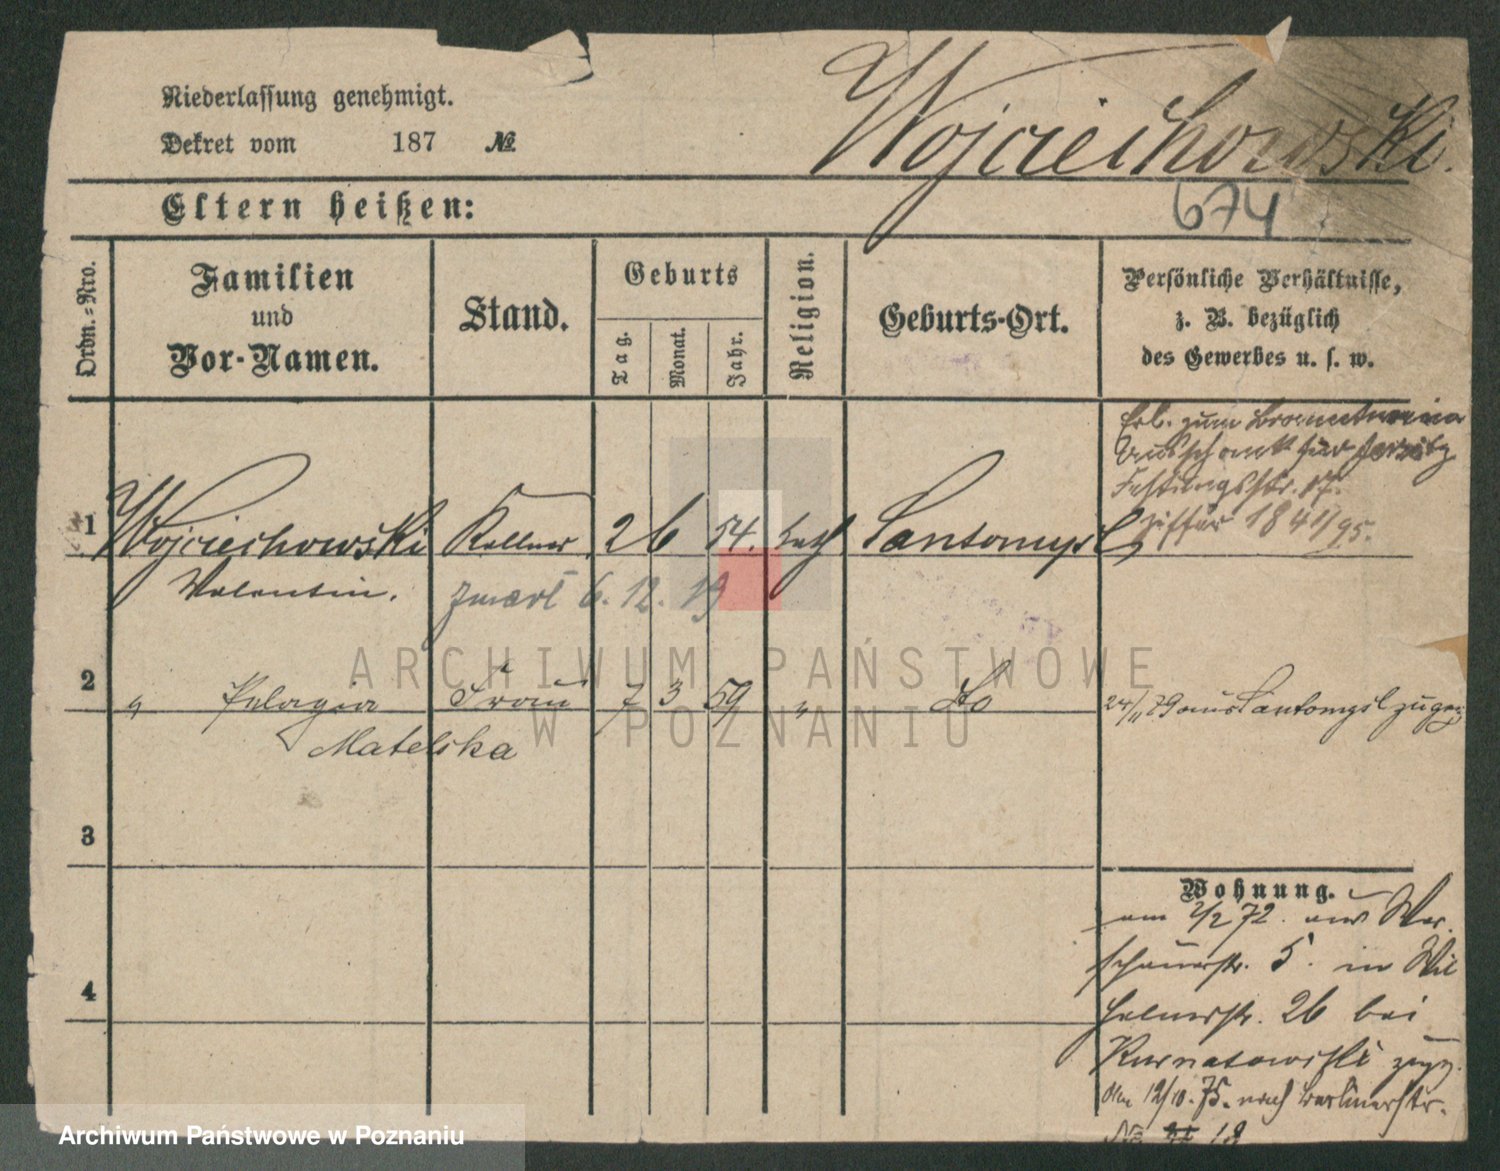 Niederlassung genehmigt.
Dekret vom 187 №
Wojciechowski.
674
Eltern heißen:
Ordn.-Nro.
Familien
und
Vor-Namen.
Stand.
Geburts
Tag.
Monat.
Jahr.
Religion.
Geburts-Ort.
Persönliche Verhältnisse,
z. B. bezüglich
des Gewerbes u. s. w.
Erl. zum Branntwein
Ausschank für Jersitz
Festungsstr. 17.
Ziffer 1841/95.
1 Wojciechowski Kellner 26 54. kath Santomysl
Valentin.
zmarł 6. 12. 19
2 " Pelagia Frau 7 3 59 " do 24/11 79 aus Santomysl zugez
Matelska
3
4
Wohnung.
am 2/2 72. aus War
schauerstr. 5. in Wil
helmsstr. 26 bei
Kurnatowski zugez.
Am 12/10. 75. nach Berlinerstr.
No 18
ARCHIWUM PAŃSTWOWE
W POZNANIU
Archiwum Państwowe w Poznaniu